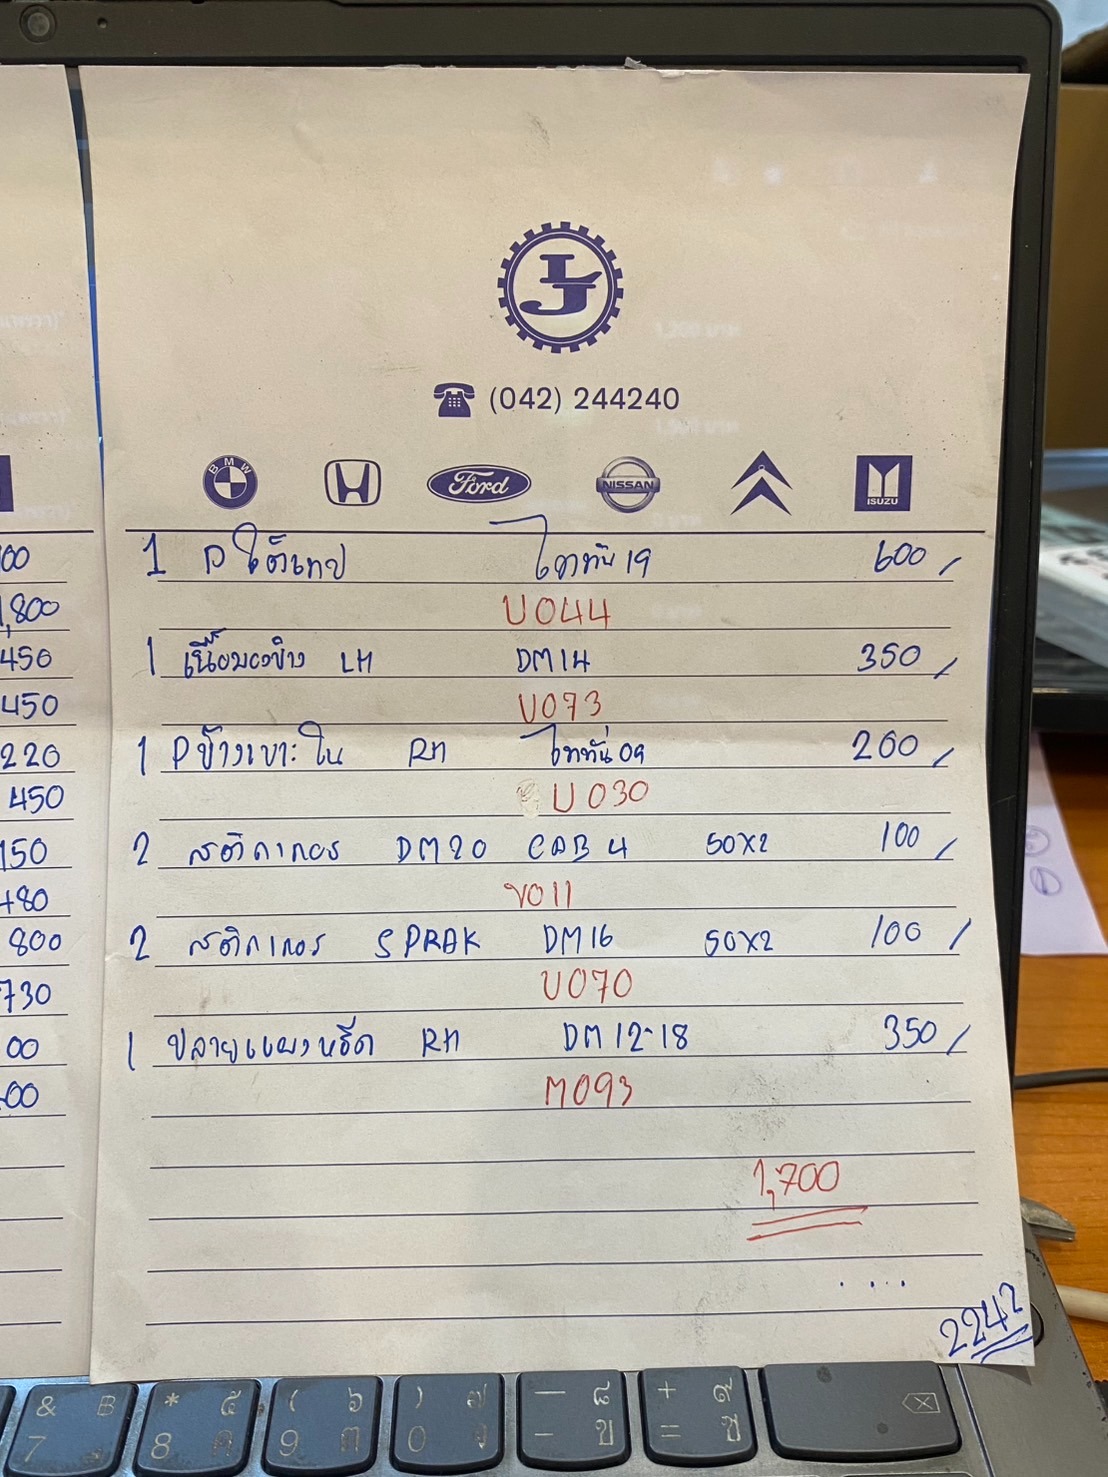 LJ
(042) 244240
BMW Ford NISSAN ISUZU
1 P ใต้เทป ไททัน 19 600 /
U044
1 เนื้อมองข้าง LH DM14 350 /
U073
1 Pข้างเบาะใน RH ไททัน 09 200 /
U030
2 สติกเกอร์ DM20 CAB4 50X2 100 /
V011
2 สติกเกอร์ SPRAK DM16 50X2 100 /
U070
1 ปลายแผงหรีด RH DM12-18 350 /
M093
1,700
2242
00
1,800
450
450
220
450
150
480
800
730
00
00
& B 7
* ๕ 8 ค
( ๖ 9 ต
) ๗ 0 จ
— ๘ - ข
+ ๙ = ช